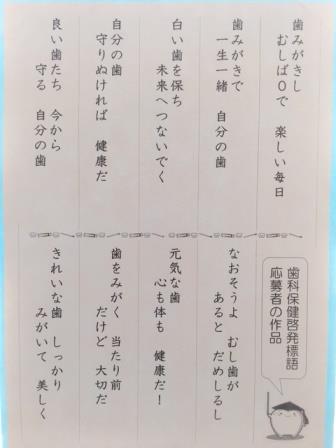 歯みがきし
むしば０で　楽しい毎日
歯みがきで
一生一緒　自分の歯
白い歯を保ち
未来へつないでく
自分の歯
守りぬければ　健康だ
良い歯たち　今から
守る　自分の歯
歯科保健啓発標語
応募者の作品
なおそうよ　むし歯が
あると　だめしるし
元気な歯
心も体も　健康だ！
歯をみがく　当たり前
だけど　大切だ
きれいな歯　しっかり
みがいて　美しく